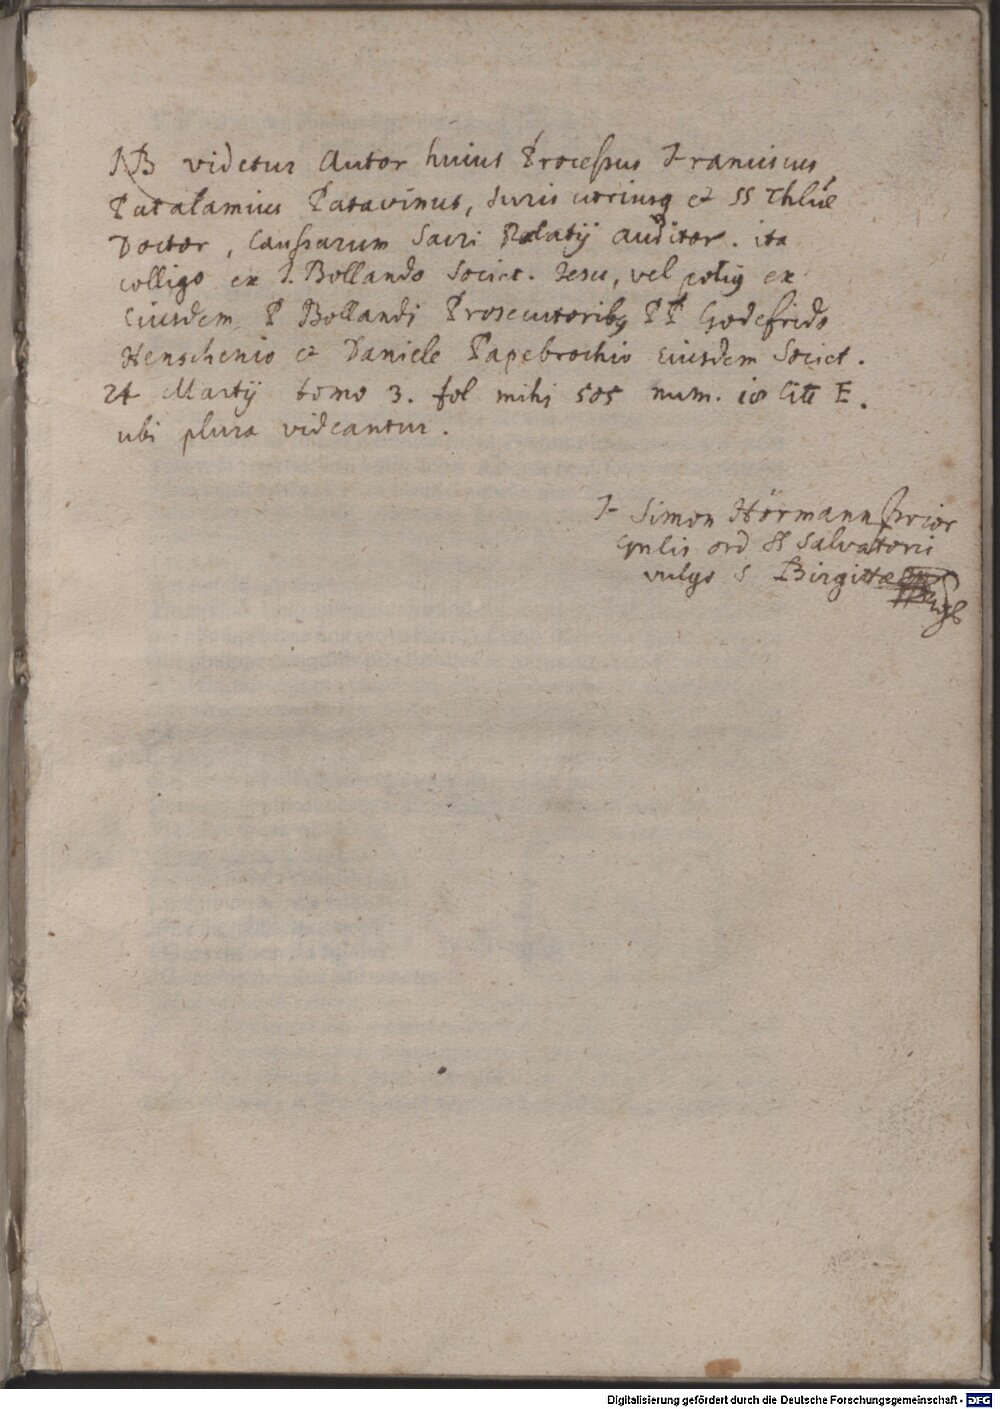 NB videtur Autor huius Processus Franciscus
Patalamius Patavinus, Juris utriusq et SS Thlae
Doctor, Caussarum Sacri Palatij auditor. ita
colligo ex J. Bollando Societ. Iesu, vel potiq ex
Eiusdem P Bollandi Prosecutoribq PP Godefrido
Henschenio et Daniele Papebrochio Eiusdem Societ.
24 Martij tomo 3. fol mihi 505 num. 10 Litt E.
ubi plura videantur.
F Simon Hörmann Prior
Gnlis ord SS Salvatoris
vulgo S Birgittae
Digitalisierung gefördert durch die Deutsche Forschungsgemeinschaft - DFG